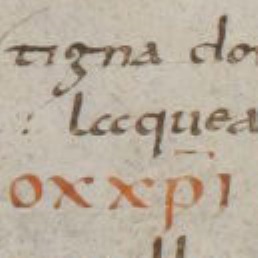 tigna do
: lccquea
oxxp̄i